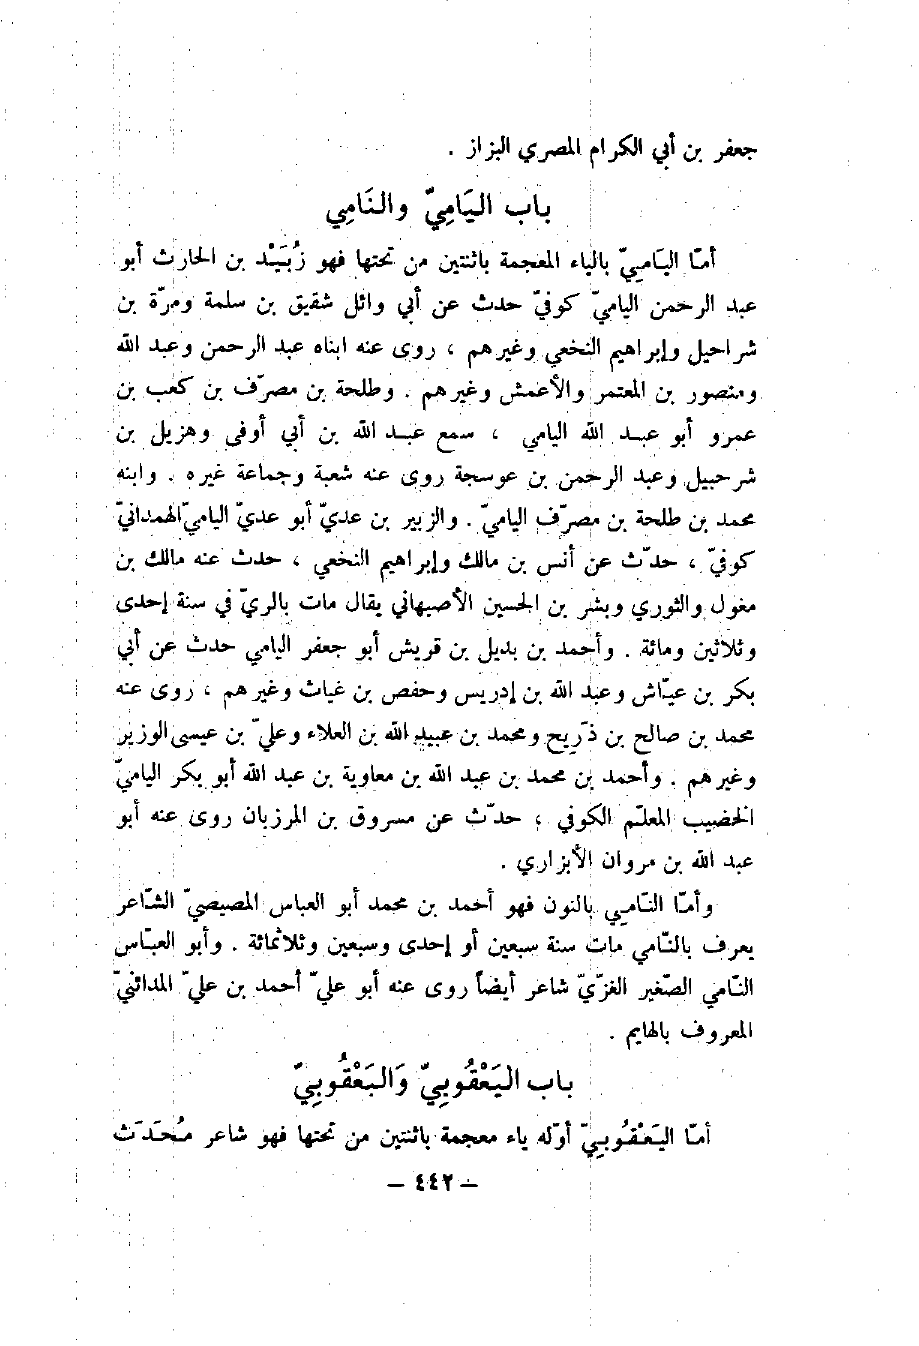 جعفر بن أبي الكرام المصري البزاز .
باب اليَامِيّ والنَامِي
أمّا اليَاميّ بالياء المعجمة باثنتين من تحتها فهو زُبَيْد بن الحارث أبو
عبد الرحمن الياميّ كوفيّ حدث عن أبي وائل شقيق بن سلمة ومرّة بن
شراحيل وإبراهيم النخعي وغيرهم ، روى عنه ابناه عبد الرحمن وعبد الله
ومنصور بن المعتمر والأعمش وغيرهم . وطلحة بن مصرّف بن كعب بن
عمرو أبو عبد الله اليامي ، سمع عبد الله بن أبي أوفى وهزيل بن
شرحبيل وعبد الرحمن بن عوسجة روى عنه شعبة وجماعة غيره . وابنه
محمد بن طلحة بن مصرّف الياميّ . والزبير بن عديّ أبو عديّ الياميّ الهمدانيّ
كوفيّ ، حدّث عن أنس بن مالك وإبراهيم النخعي ، حدث عنه مالك بن
مغول والثوري وبشر بن الحسين الأصبهاني يقال مات بالريّ في سنة إحدى
وثلاثين ومائة . وأحمد بن بديل بن قريش أبو جعفر اليامي حدث عن أبي
بكر بن عيّاش وعبد الله بن إدريس وحفص بن غياث وغيرهم ، روى عنه
محمد بن صالح بن ذَريح ومحمد بن عبيد الله بن العلاء وعليّ بن عيسى الوزير
وغيرهم . وأحمد بن محمد بن عبد الله بن معاوية بن عبد الله أبو بكر الياميّ
الخضيب المعلّم الكوفي ؛ حدّث عن مسروق بن المرزبان روى عنه أبو
عبد الله بن مروان الأبزاري .
وأمّا النّامي بالنون فهو أحمد بن محمد أبو العباس المصيصيّ الشّاعر
يعرف بالنّامي مات سنة سبعين أو إحدى وسبعين وثلاثمائة . وأبو العبّاس
النّامي الصّغير الغزّيّ شاعر أيضاً روى عنه أبو عليّ أحمد بن عليّ المدائنيّ
المعروف بالهايم .
باب اليَعْقُوبيّ وَالبَعْقُوبيّ
أمّا اليَعْقُوبيّ أوّله ياء معجمة باثنتين من تحتها فهو شاعر مُحَدَث
— ٤٤٢ —